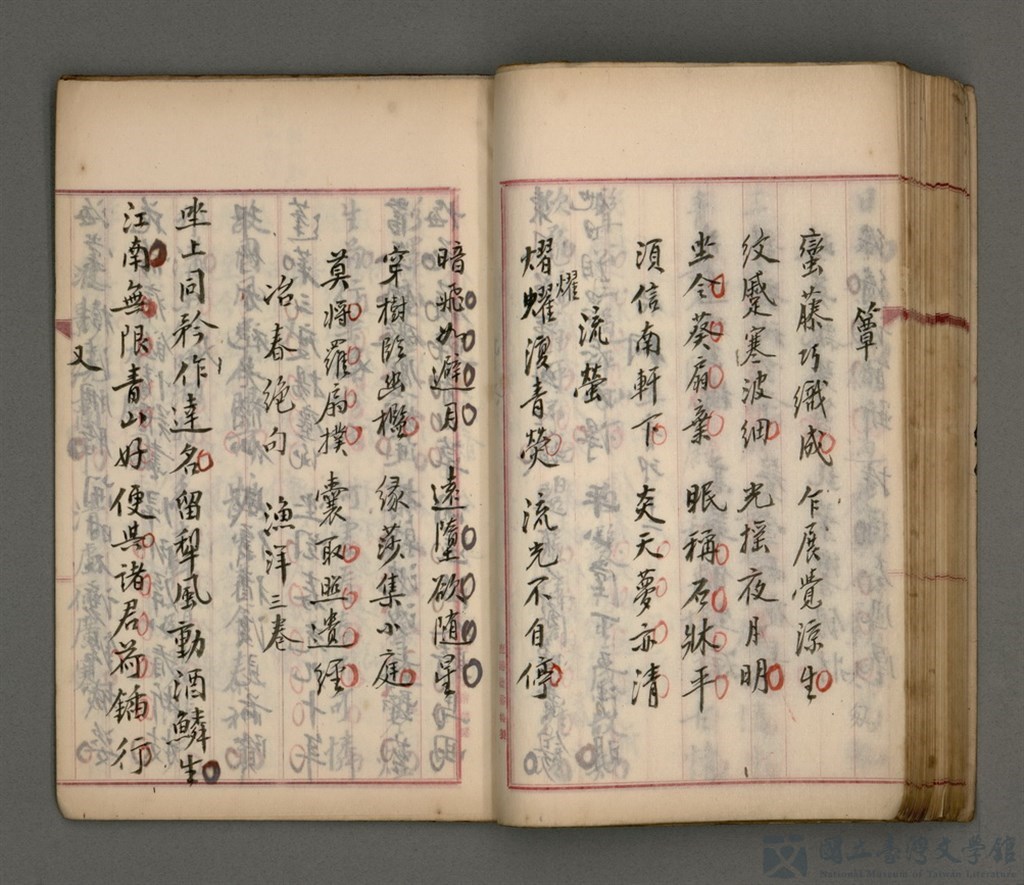 簟
蠻藤巧織成 乍展覺涼生
紋蹙寒波細 光搖夜月明
坐令葵扇棄 眠稱石牀平
須信南軒下 炎天夢亦清
流螢
熠燿渡青熒 流光不自停
耀
暗飛如避月 遠墮欲随星
穿樹臨幽檻 緣莎集小庭
莫將羅扇撲 囊取照遺經
冶春絕句 漁洋三卷
坐上同矜作達名留犁風動酒鱗生
江南無限青山好便與諸君荷鍤行
又
國立臺灣文學館
National Museum of Taiwan Literature